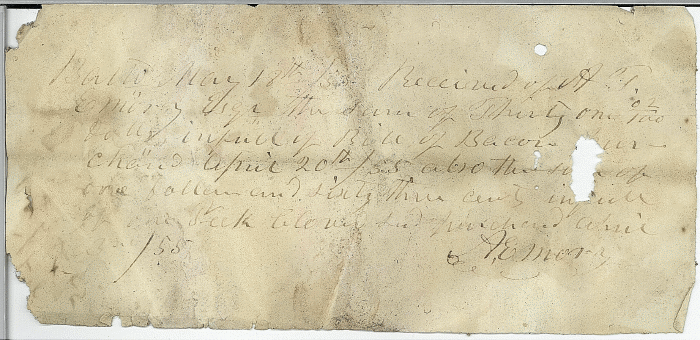 Balto May 18th /55 Received of A. T.
Emory Esqr the sum of Thirty one 02/100
dolls in full of Bill of Bacon pur-
chased April 20th /55 also the sum of
one dollar and sixty three cents in full
of one Peck Clover seed purchased April
/55
A. Emory